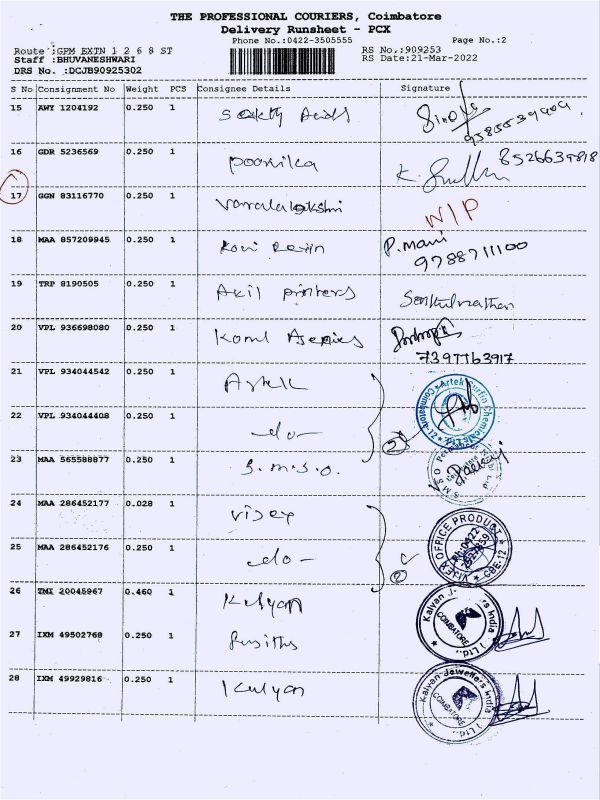 THE PROFESSIONAL COURIERS, Coimbatore
Delivery Runsheet - PCX
Phone No.:0422-3505555 Page No.:2
Route :GPM EXTN 1 2 6 8 ST RS No.:909253
Staff :BHUVANESHWARI RS Date:21-Mar-2022
DRS No. :DCJB90925302
S No Consignment No Weight PCS Consignee Details Signature
15 AWY 1204192 0.250 1
16 GDR 5236569 0.250 1 poornika K.
17 GGN 83116770 0.250 1 Varalalakshmi W/P
18 MAA 857209945 0.250 1 P. Mani
9788711100
19 TRP 8190505 0.250 1 Akil printers
20 VPL 936698080 0.250 1
7397763917
21 VPL 934044542 0.250 1 Artek
22 VPL 934044408 0.250 1 -do-
23 MAA 565588877 0.250 1 S.M.S.O.
24 MAA 286452177 0.028 1 Vijey
25 MAA 286452176 0.250 1 -do-
OFFICE PRODUCT
VIJEY CBE-12
26 TMI 20045967 0.460 1 Kalyan
Kalyan J ers India
COIMBATORE
27 IXM 49502768 0.250 1
28 IXM 49929816 0.250 1 Kalyan
Kalyan Jewellers India
COIMBATORE